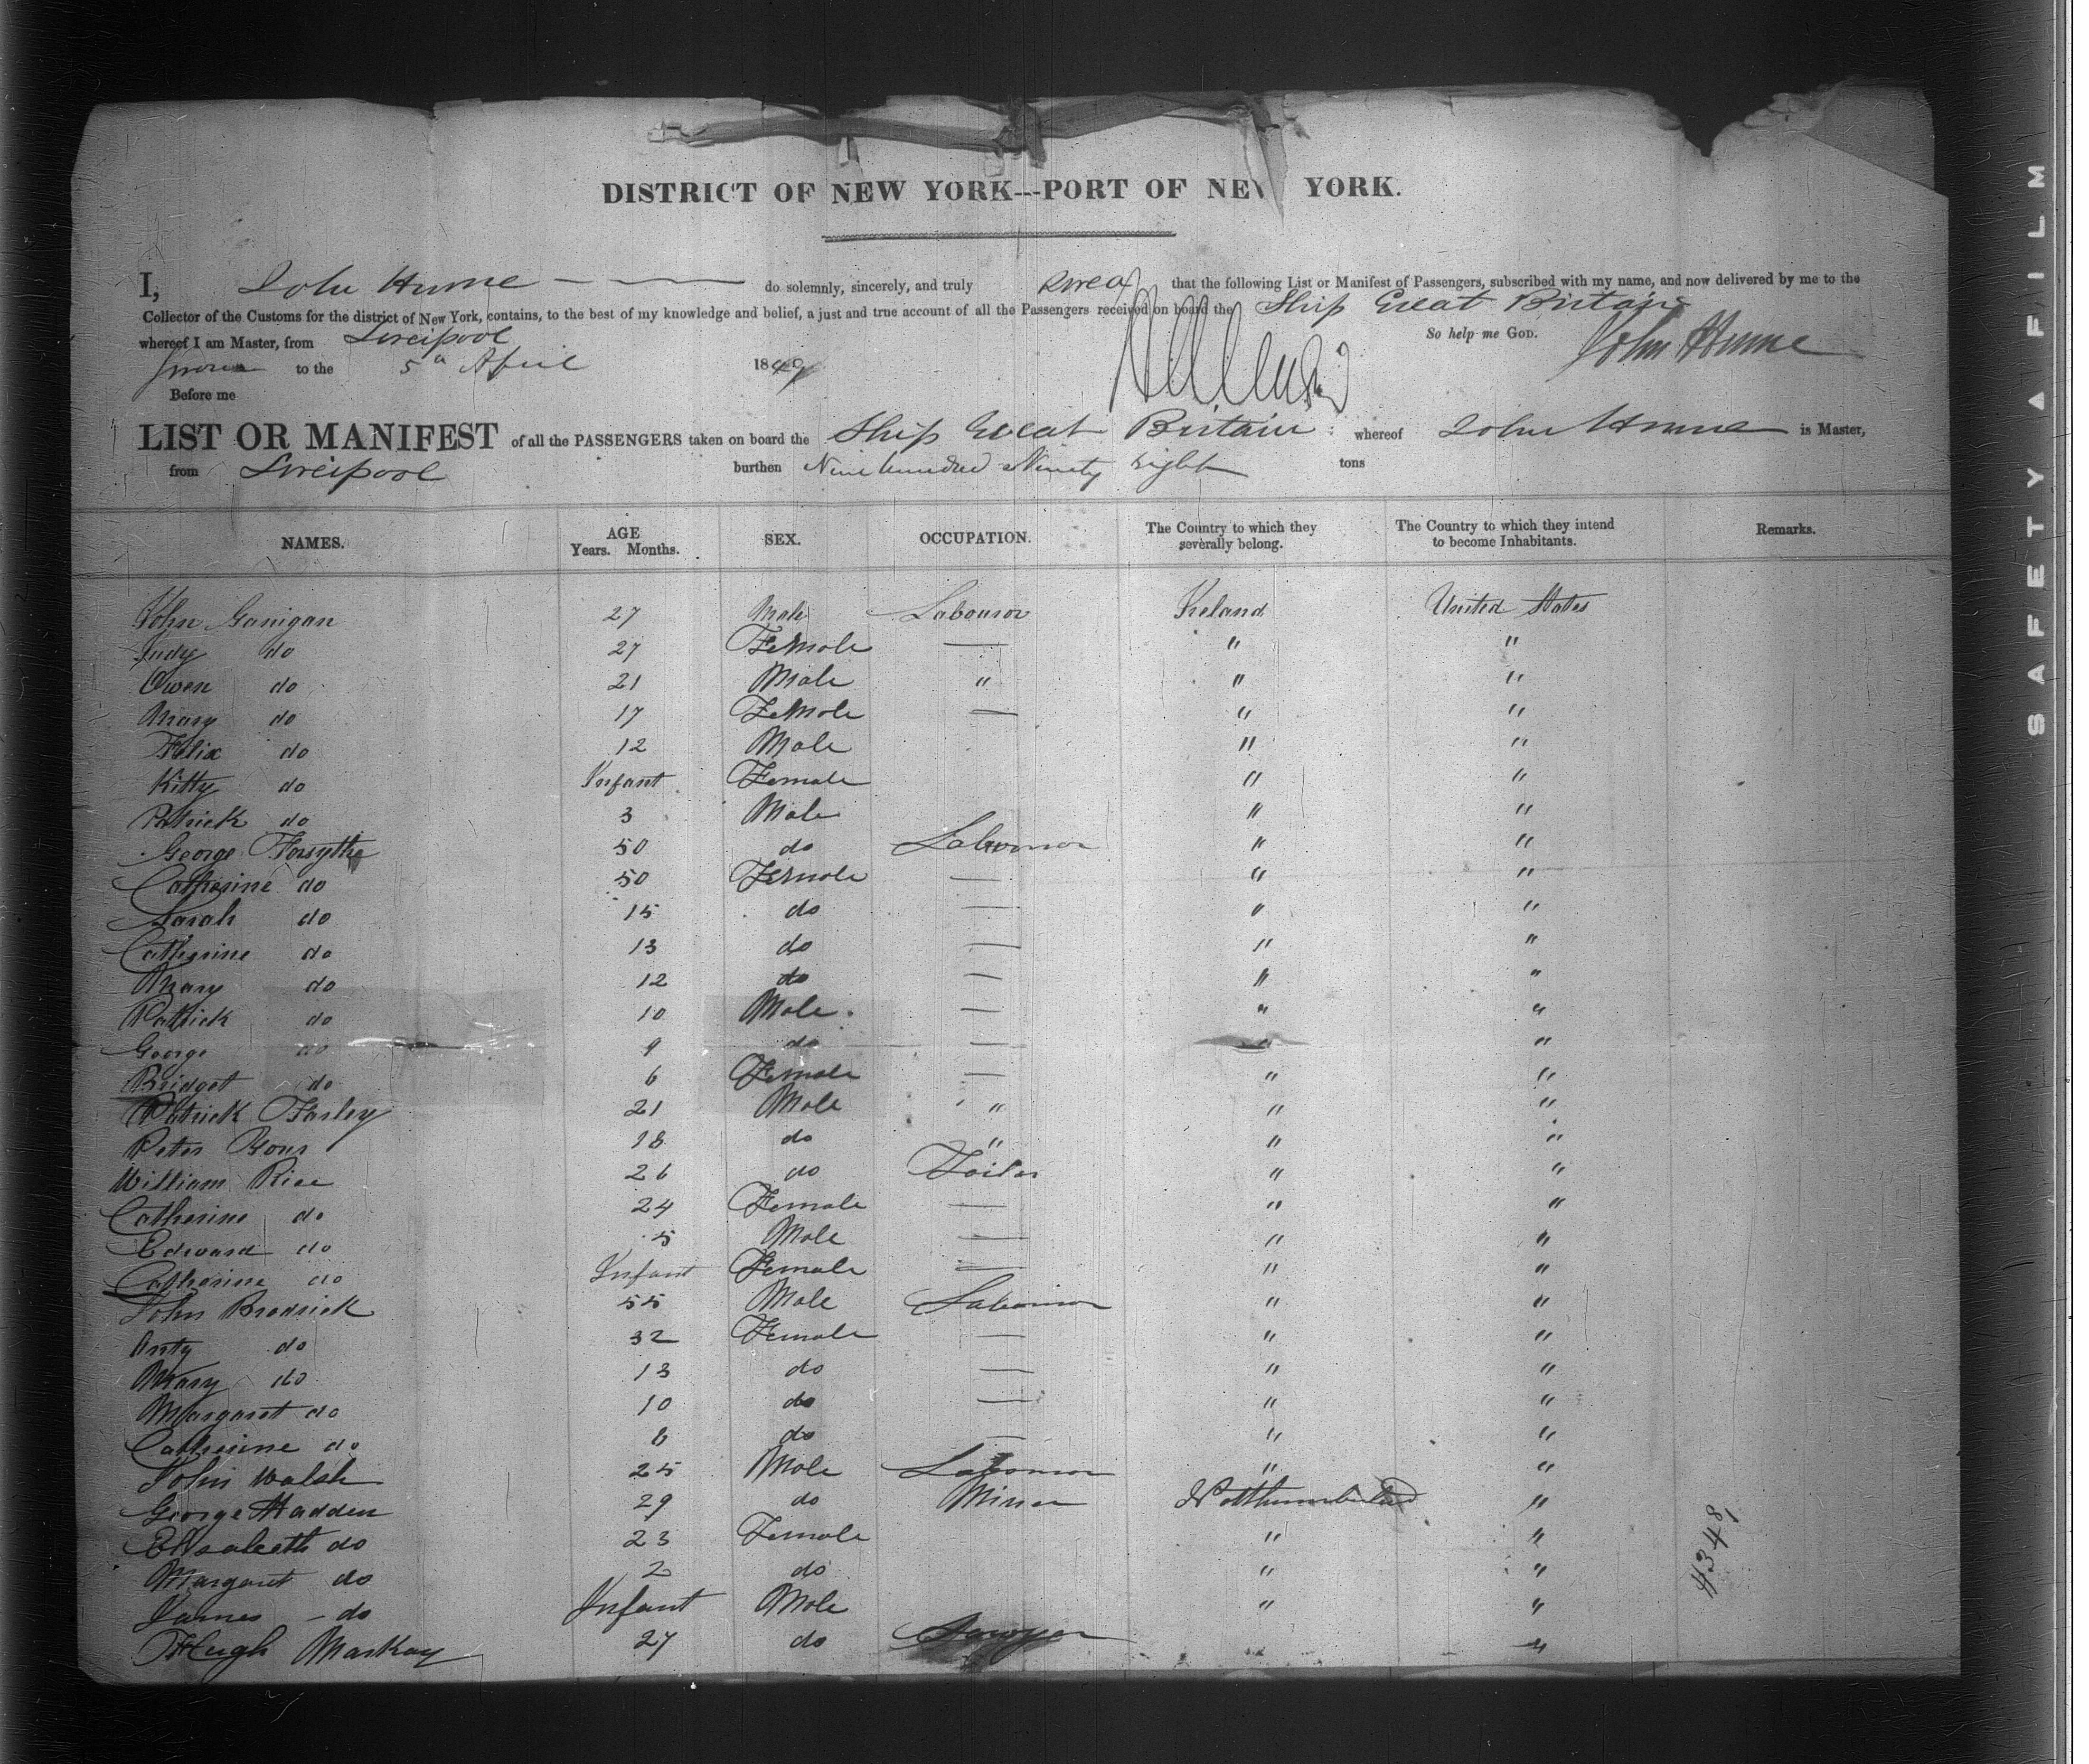 DISTRICT OF NEW YORK---PORT OF NEW YORK.
I, John Hume — — do solemnly, sincerely, and truly swear that the following List or Manifest of Passengers, subscribed with my name, and now delivered by me to the
Collector of the Customs for the district of New York, contains, to the best of my knowledge and belief, a just and true account of all the Passengers received on board the Ship Great Britain
whereof I am Master, from Liverpool So help me GOD. John Hume
Sworn to the 5th April 1849
Before me
LIST OR MANIFEST of all the PASSENGERS taken on board the Ship Great Britain whereof John Hume is Master,
from Liverpool burthen Nine hundred Ninety eight tons
NAMES. AGE Years. Months. SEX. OCCUPATION. The Country to which they severally belong. The Country to which they intend to become Inhabitants. Remarks.
John Ganigan 27 Male Labouror Ireland United States
Judy do 27 Female — " "
Owen do 21 Male " " "
Mary do 17 Female — " "
Felix do 12 Male " "
Kitty do Infant Female " "
Patrick do 3 Male " "
George Forsythe 50 do Labouror " "
Catherine do 50 Female — " "
Sarah do 15 do — " "
Catherine do 13 do — " "
Mary do 12 do — " "
Patrick do 10 Male — " "
George do 9 do — " "
Bridget do 6 Female — " "
Patrick Farley 21 Male " " "
Peter 18 do " " "
William Rice 26 do Tailor " "
Catherine do 24 Female — " "
Edward do 5 Male — " "
Catherine do Infant Female — " "
John Brodrick 55 Male Labouror " "
Anty do 32 Female — " "
Mary do 13 do — " "
Margaret do 10 do — " "
Catherine do 8 do — " "
John Walsh 25 Male Labouror " "
George Hadden 29 do Miner Northumberland "
Elisabeth do 23 Female " "
Margaret do 2 do " "
James - do Infant Male " "
Hugh Markay 27 do Sawyer "
#348
SAFETY FILM